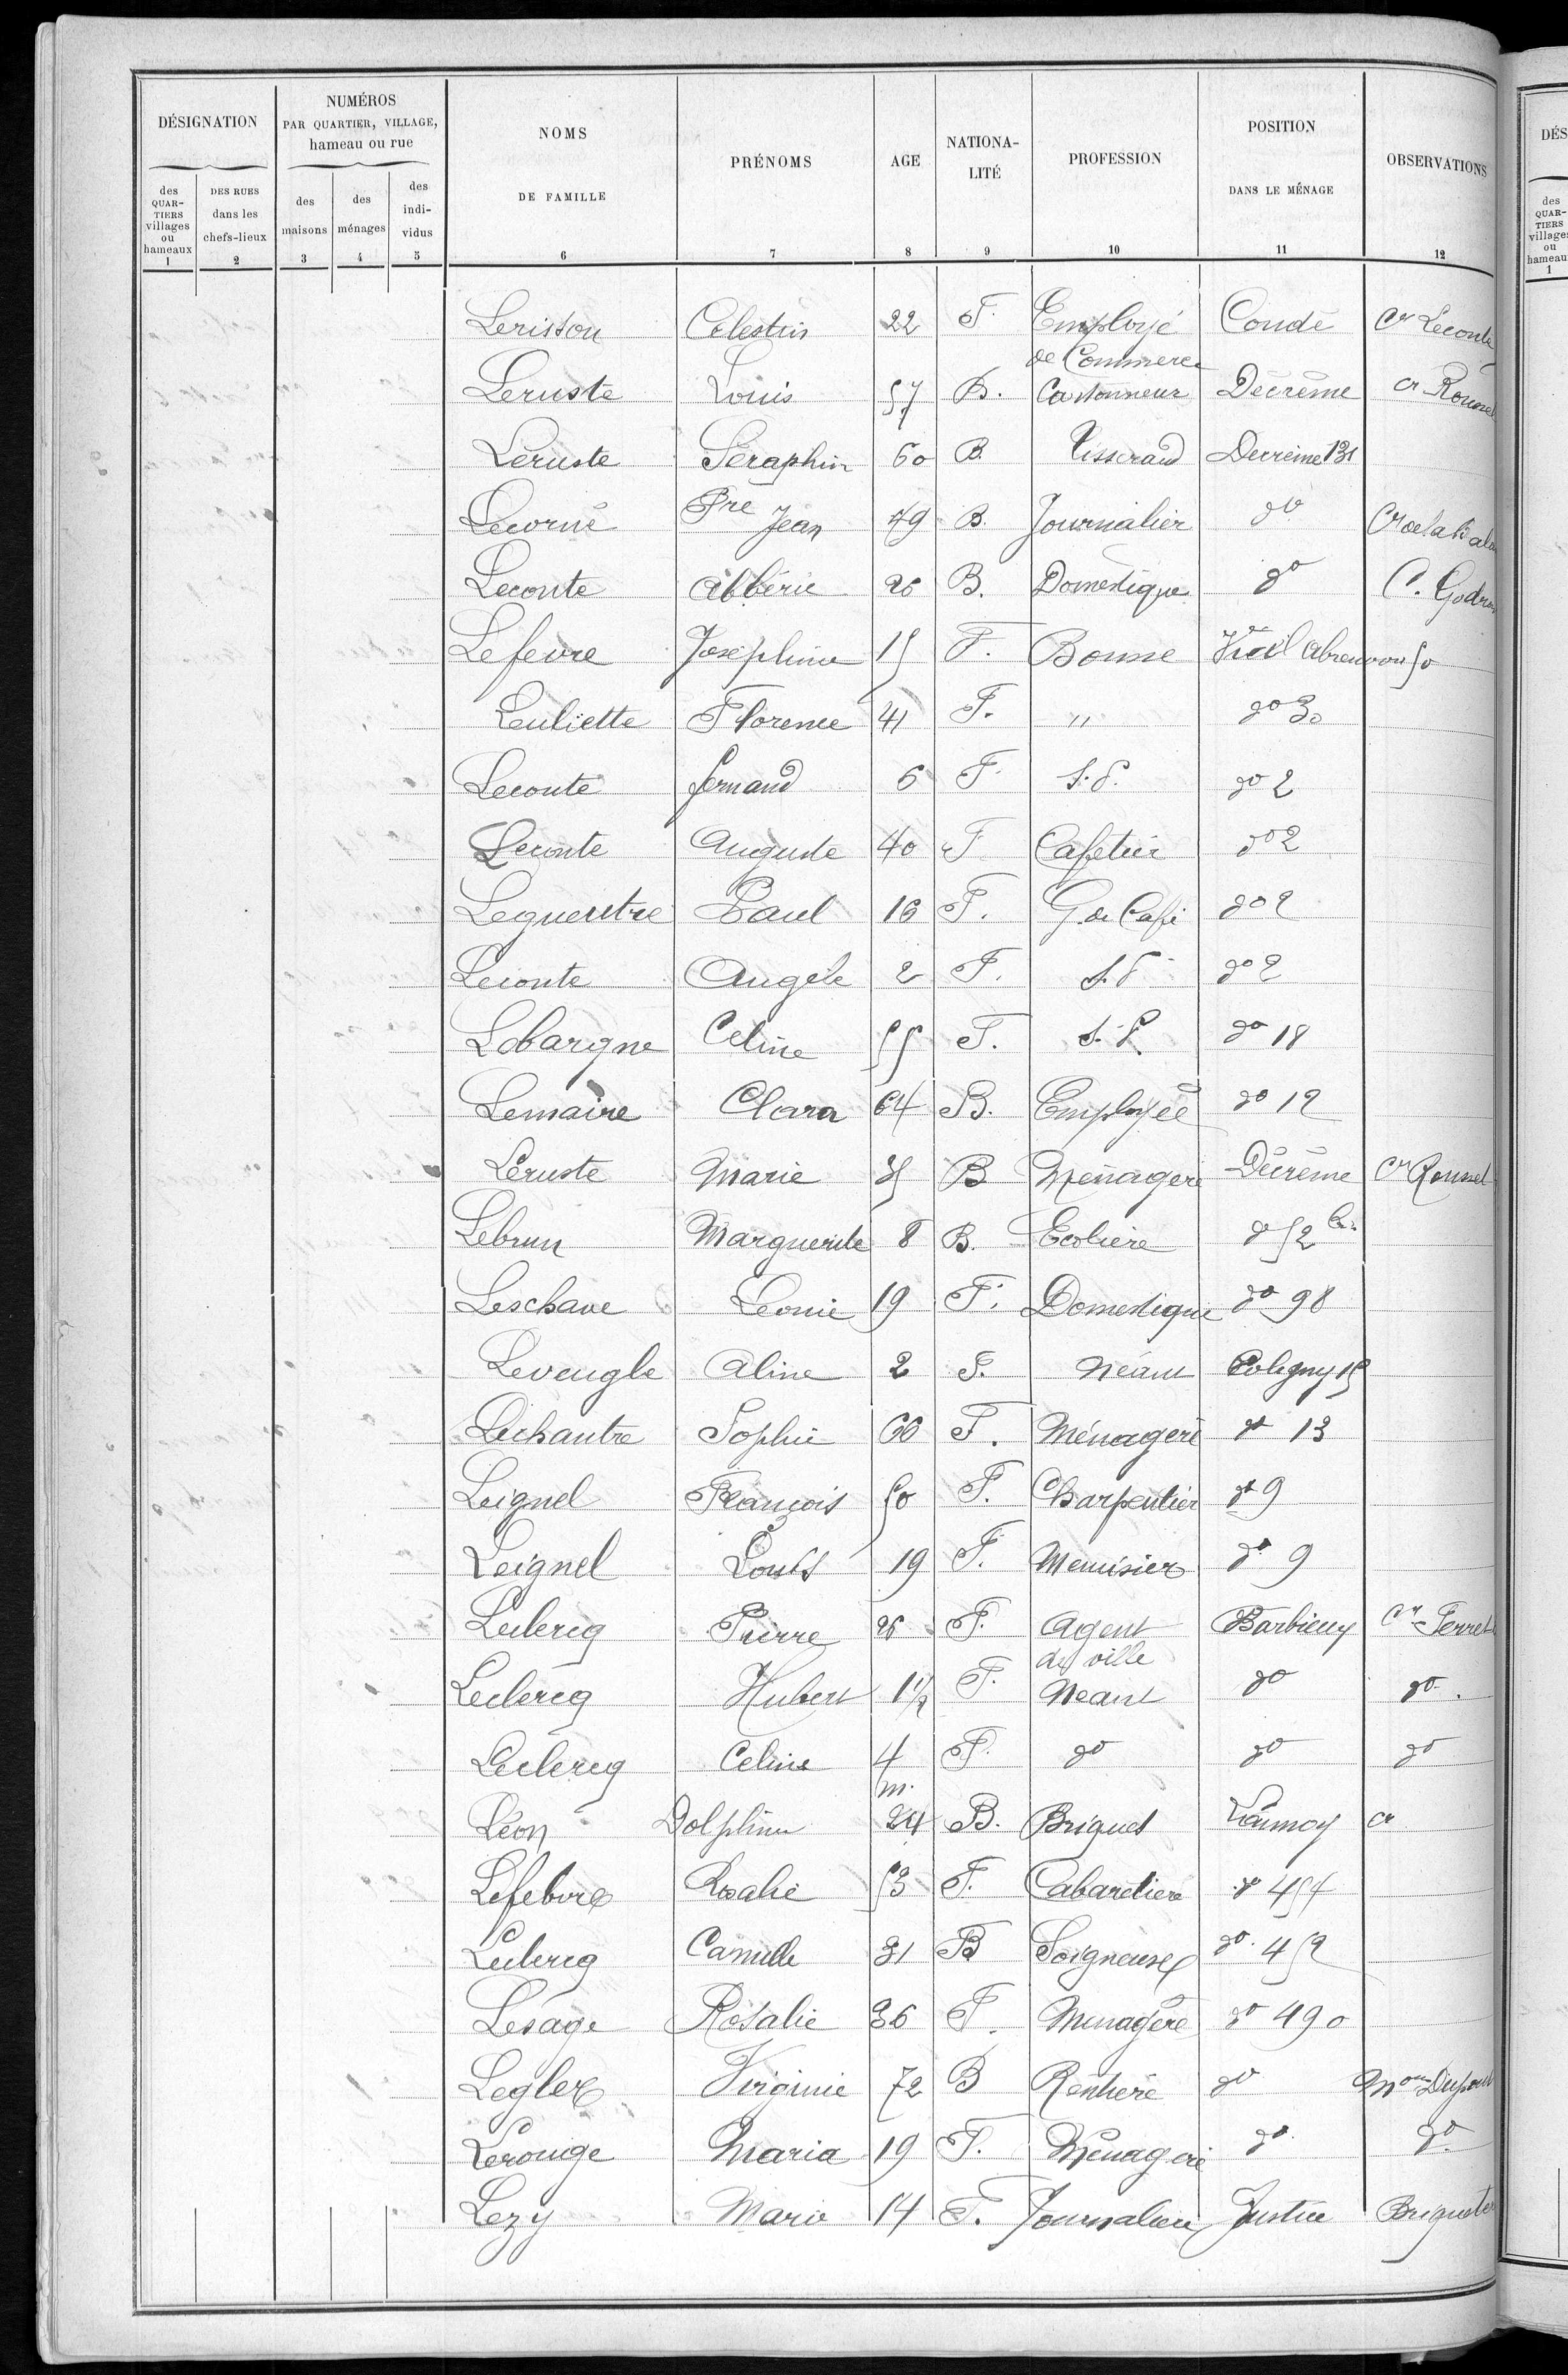 DÉSIGNATION
NUMÉROS
PAR QUARTIER, VILLAGE,
hameau ou rue
NOMS
DE FAMILLE
PRÉNOMS
AGE
NATIONA-
LITÉ
PROFESSION
POSITION
DANS LE MÉNAGE
OBSERVATIONS
des
QUAR-
TIERS
villages
ou
hameaux
DES RUES
dans les
chefs-lieux
des
maisons
des
ménages
des
indi-
vidus
1 2 3 4 5 6 7 8 9 10 11 12
Lerisson Celestin 22 F. Employé de Commerce Condé Cr Leconte
Leruste Louis 57 B. Cartonneur Décrême cr Roussel
Leruste Séraphin 60 B. Tisserand Decrême 131
Lecorné Pre Jean 49 B. Journalier do
Leconte Albéric 26 B. Domestique do C. Godron
Lefevre Joséphine 15 F. Bonne Vieil Abreuvoir 50
Leuliette Florence 41 F. " do 30
Leconte fernand 6 F S.P. do 2
Leconte Auguste 40 F Cafetier do 2
Lequentre Paul 16 F. G. de Café do 2
Leconte Angèle 2 F. S.P do 2
Lobargne Celine 55 F. S.P. do 18
Lemaire Clara 64 B. Employée do 12
Leruste Marie 35 B Ménagère Décrême Cr Roussel
Lebrun Marguerite 8 B. Ecolière do 52
Leschave Leonie 19 F. Domestique do 98
Leveugle Aline 2 F. Néant Coligny 15
Lechantre Sophie 66 F. Ménagère do 13
Leignel François 50 F. Charpentier do 9
Leignel Louis 19 F. Menuisier do 9
Leclercq Pierre 26 F. Agent de ville Barbieux Cr Ferret
Leclercq Hubert 1 1/2 F. Neant do do.
Leclercq Celine 4 m. F. do do do
Léon Dolphine 24 B. Briquet Lannoy cr
Lefebvre Rosalie 53 F. Cabaretière do 454
Leclercq Camille 31 B Soigneuse do. 452
Lesage Rosalie 36 F. Menagère do 490
Legler Virginie 72 B Rentière do Mon Dupont
Lerouge Maria 19 F. Ménagère do do.
Lezy Marie 14 F. Journalière Justice Briqueter
DÉS
des
QUAR-
TIERS
villages
ou
hameau
1